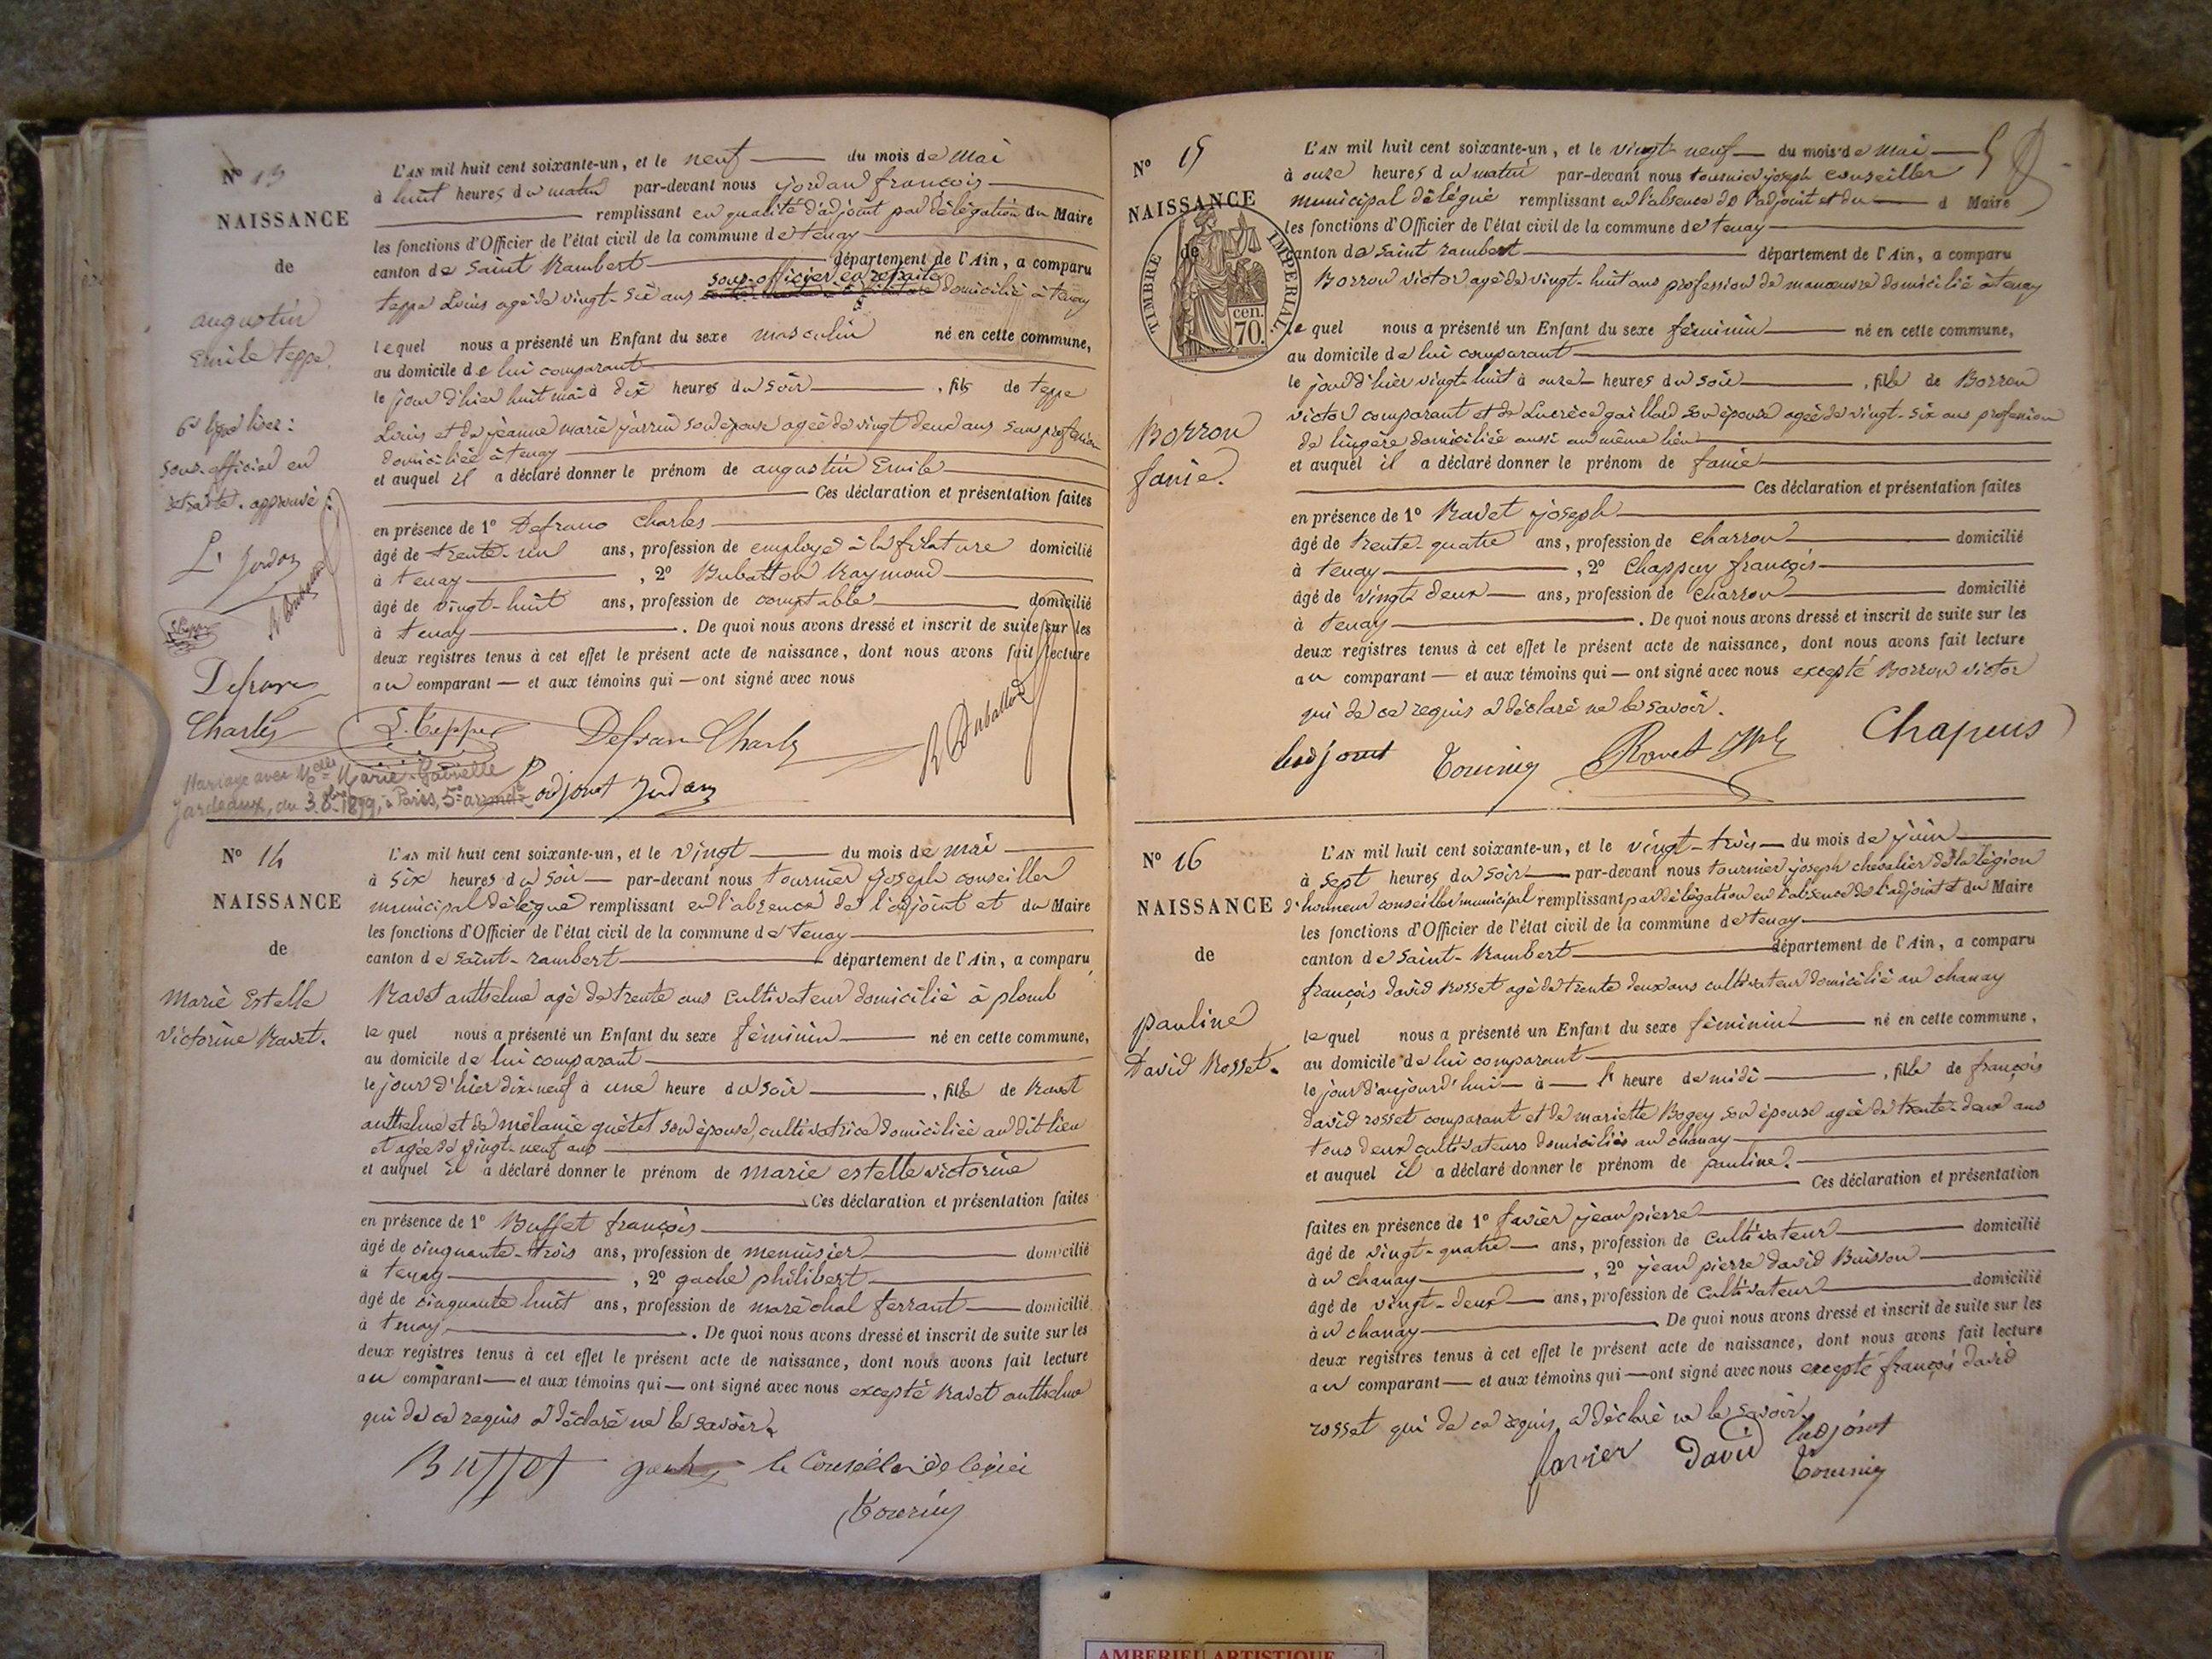 N° 13
NAISSANCE
de
augustin
Emile teppe.
6e ligne lisez:
sous-officier en
retraite. approuvé:
L' Jordan
Defranc
Charles
Mariage avec Melle Marie-Gabrielle
Jardeaux, du 3 8bre 1899, à Paris, 5e arrondt
L'AN mil huit cent soixante-un, et le neuf du mois de Mai
à huit heures du matin par-devant nous jordan françois
remplissant en qualité d'adjoint par délégation du Maire
les fonctions d'Officier de l'état civil de la commune de tenay
canton de Saint Rambert département de l'Ain, a comparu
sous-officier en retraite
teppe Louis agé de vingt-six ans domicilié à tenay
lequel nous a présenté un Enfant du sexe masculin né en cette commune,
au domicile de lui comparant
le jour d'hier huit mai à dix heures du soir, fils de teppe
Louis et de jeanne marie jarrin son épouse agée de vingt deux ans sans profession
domiciliée à tenay
et auquel il a déclaré donner le prénom de augustin Emile
Ces déclaration et présentation faites
en présence de 1° Defranc Charles
âgé de trente-un ans, profession de employé à la filature domicilié
à tenay, 2° Dubatton Raymond
âgé de vingt-huit ans, profession de comptable domicilié
à tenay. De quoi nous avons dressé et inscrit de suite sur les
deux registres tenus à cet effet le présent acte de naissance, dont nous avons fait lecture
au comparant — et aux témoins qui — ont signé avec nous
L. Teppe Defranc Charles R Dubatton
L'adjoint Jordan
N° 14
NAISSANCE
de
Marie Estelle
Victorine Ravet.
L'AN mil huit cent soixante-un, et le vingt du mois de mai
à six heures du soir par-devant nous tournier joseph conseiller
municipal délégué remplissant en l'absence de l'adjoint et du Maire
les fonctions d'Officier de l'état civil de la commune de tenay
canton de saint-rambert département de l'Ain, a comparu
Ravet anthelme agé de trente ans cultivateur domicilié à plomb
lequel nous a présenté un Enfant du sexe féminin né en cette commune,
au domicile de lui comparant
le jour d'hier dix-neuf à une heure du soir, fille de Ravet
anthelme et de mélanie quêtet son épouse, cultivatrice domiciliée au dit lieu
et agée de vingt-neuf ans
et auquel il a déclaré donner le prénom de marie estelle victorine
Ces déclaration et présentation faites
en présence de 1° Buffet françois
âgé de cinquante-trois ans, profession de menuisier domicilié
à tenay, 2° gache philibert
âgé de cinquante huit ans, profession de maréchal ferrant domicilié
à tenay. De quoi nous avons dressé et inscrit de suite sur les
deux registres tenus à cet effet le présent acte de naissance, dont nous avons fait lecture
au comparant — et aux témoins qui — ont signé avec nous excepté Ravet anthelme
qui de ce requis a déclaré ne le savoir.
Buffet gache le Conseiller délégué
Tournier
N° 15
NAISSANCE
de
TIMBRE IMPERIAL.
70 cen.
Borron
fanie.
L'AN mil huit cent soixante-un, et le vingt-neuf du mois de mai
à onze heures du matin par-devant nous tournier joseph conseiller
municipal délégué remplissant en l'absence de l'adjoint et du d Maire
les fonctions d'Officier de l'état civil de la commune de tenay
canton de saint rambert département de l'Ain, a comparu
Borron victor agé de vingt-huit ans profession de manœuvre domicilié à tenay
lequel nous a présenté un Enfant du sexe féminin né en cette commune,
au domicile de lui comparant
le jour d'hier vingt-huit à onze heures du soir, fille de Borron
victor comparant et de Lucrèce gaillard son épouse agée de vingt-six ans profession
de lingère domiciliée aussi au même lieu
et auquel il a déclaré donner le prénom de fanie
Ces déclaration et présentation faites
en présence de 1° Ravet joseph
âgé de trente-quatre ans, profession de charron domicilié
à tenay, 2° Chappuy françois
âgé de vingt deux ans, profession de charron domicilié
à tenay. De quoi nous avons dressé et inscrit de suite sur les
deux registres tenus à cet effet le présent acte de naissance, dont nous avons fait lecture
au comparant — et aux témoins qui — ont signé avec nous excepté Borron victor
qui de ce requis a déclaré ne le savoir.
Ladjoint Tournier Ravet Chapuis
N° 16
NAISSANCE
de
pauline
David Rosset.
L'AN mil huit cent soixante-un, et le vingt-trois du mois de juin
à sept heures du soir par-devant nous tournier joseph chevalier de la légion
d'honneur conseiller municipal remplissant par délégation en l'absence de l'adjoint et du Maire
les fonctions d'Officier de l'état civil de la commune de tenay
canton de saint-Rambert département de l'Ain, a comparu
françois david Rosset agé de trente deux ans cultivateur domicilié au chanay
lequel nous a présenté un Enfant du sexe féminin né en cette commune,
au domicile de lui comparant
le jour d'aujourd'hui à l' heure de midi, fille de françois
david rosset comparant et de mariette Bogey son épouse agée de trente-deux ans
tous deux cultivateurs domiciliés au chanay
et auquel il a déclaré donner le prénom de pauline.
Ces déclaration et présentation
faites en présence de 1° favier jean pierre
âgé de vingt-quatre ans, profession de cultivateur domicilié
à au chanay, 2° jean pierre david Buisson
âgé de vingt-deux ans, profession de cultivateur domicilié
à au chanay. De quoi nous avons dressé et inscrit de suite sur les
deux registres tenus à cet effet le présent acte de naissance, dont nous avons fait lecture
au comparant — et aux témoins qui — ont signé avec nous excepté françois david
rosset qui de ce requis a déclaré ne le savoir.
favier David Ladjoint
Tournier
AMBERIEU ARTISTIQUE